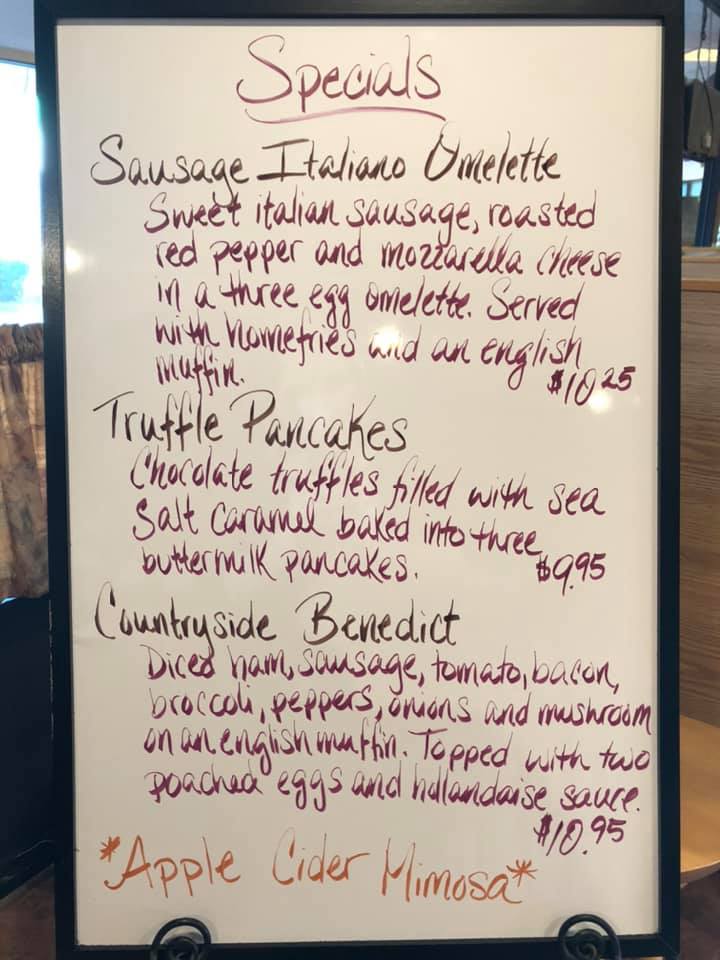 Specials
Sausage Italiano Omelette
Sweet italian sausage, roasted
red pepper and mozzarella cheese
in a three egg omelette. Served
with homefries and an english
muffin.
$10.25
Truffle Pancakes
Chocolate truffles filled with sea
salt caramel baked into three
buttermilk pancakes.
$9.95
Countryside Benedict
Diced ham, sausage, tomato, bacon,
broccoli, peppers, onions and mushroom
on an english muffin. Topped with two
poached eggs and hollandaise sauce.
$10.95
*Apple Cider Mimosa*